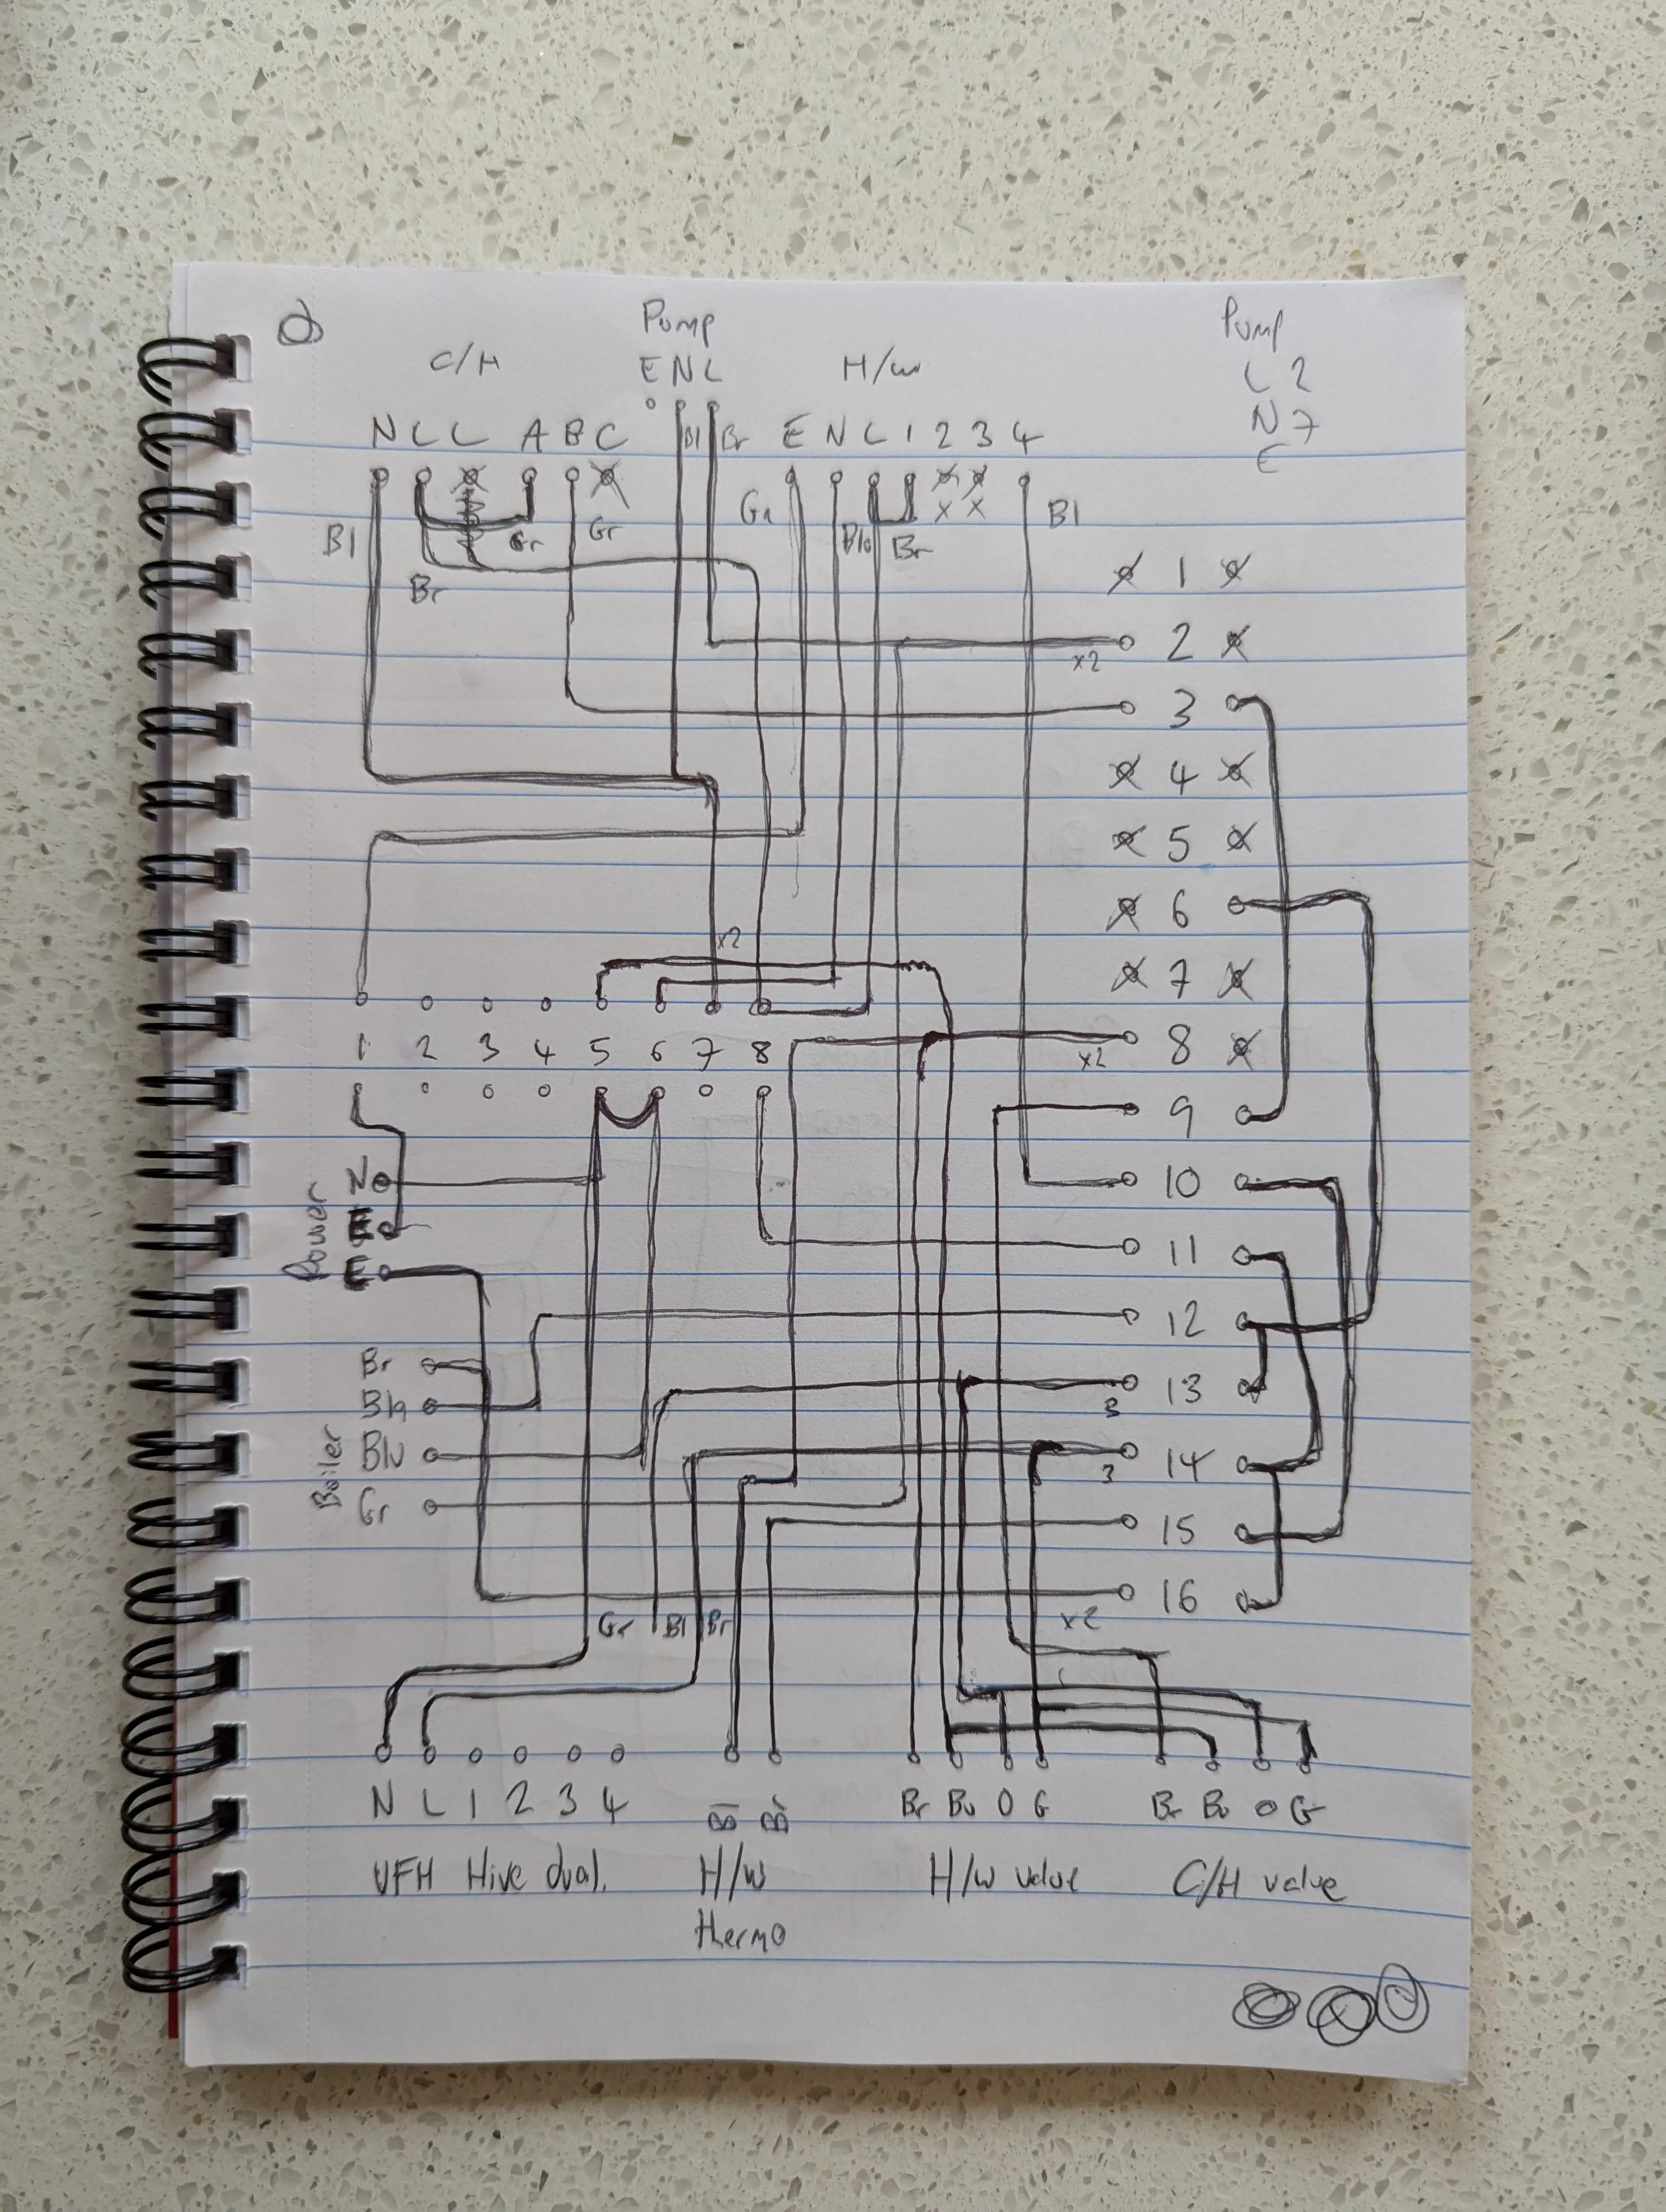 Pump Pump
C/H E N L H/W L 2
N 7
E
N L L A B C Bl Br E N L 1 2 3 4
Bl Gr Gr Gr Blu Br x x Bl
Br
1
2
x2
3
4
5
6
x2
7
1 2 3 4 5 6 7 8
8
x2
9
N
10
Power
11
E
12
Br
13
3
Boiler
Blu
14
3
Gr
15
16
Gr Bl Br x2
N L 1 2 3 4 Br Bu O G Br Bu O G
UFH Hive dual. H/W H/W valve C/H valve
thermo